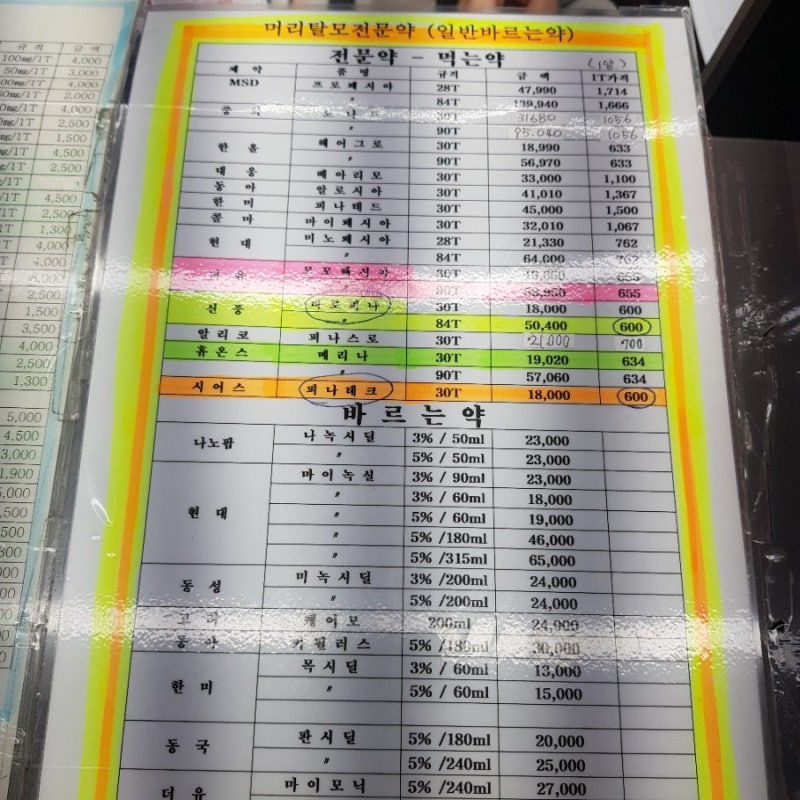 규격 금액
100mg/1T 4,000
50mg/1T 3,000
00mg/1T 4,000
50mg/1T 2,000
0mg/1T 4,000
mg/1T 2,500
mg/1T 1,500
mg/1T 4,500
mg/1T 2,500
g/1T
g/1T 4,500
/1T 2,500
/1T 1,300
1T 4,000
1T 4,000
T
2,500
1,500
3,500
4,000
2,500
1,300
5,000
4,500
3,000
머리탈모전문약 (일반바르는약)
전문약 - 먹는약 (1알)
제약 품명 규격 금액 1T가격
MSD 프로페시아 28T 47,990 1,714
〃 84T 139,940 1,666
30T 31680 1056
〃 90T 95.040 1056
한올 헤어그로 30T 18,990 633
〃 90T 56,970 633
대웅 베아리모 30T 33,000 1,100
동아 알로시아 30T 41,010 1,367
한미 피나테드 30T 45,000 1,500
콜마 마이페시아 30T 32,010 1,067
현대 미노페시아 28T 21,330 762
〃 84T 64,000 762
더유 모모페시아 30T 655
〃 90T 58,950 655
신풍 바로피나 30T 18,000 600
〃 84T 50,400 600
알리코 피나스로 30T 21,000 700
휴온스 메리나 30T 19,020 634
〃 90T 57,060 634
시어스 피나테크 30T 18,000 600
바르는약
나노팜 나녹시딜 3% / 50ml 23,000
〃 5% / 50ml 23,000
현대 마이녹실 3% / 90ml 23,000
〃 3% / 60ml 18,000
〃 5% / 60ml 19,000
〃 5% /180ml 46,000
〃 5% /315ml 65,000
동성 미녹시딜 3% /200ml 24,000
〃 5% /200ml 24,000
케어모 200ml 24,000
동아 카필러스 5% /180ml 30,000
한미 목시딜 3% / 60ml 13,000
〃 5% / 60ml 15,000
동국 판시딜 5% /180ml 20,000
〃 5% /240ml 25,000
더유 마이모닉 5% /240ml 27,000